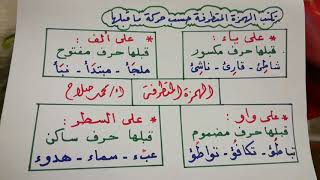 تكتب الهمزة المتطرفة حسب حركة ما قبلها
* على ياء:
قبلها حرف مكسور
شاطِئ - قارِئ - ناشِئ
* على ألف:
قبلها حرف مفتوح
ملجَأ - مبتدَأ - نبَأ
الهمزة المتطرفة
أ/ محمد صلاح
* على واو:
قبلها حرف مضموم
تباطُؤ - تكافُؤ - تواطُؤ
* على السطر:
قبلها حرف ساكن
عبْء - سماء - هدوء